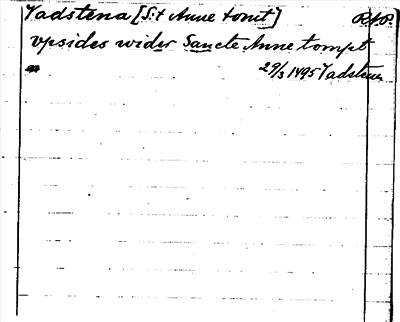 Vadstena [S:t Anne tomt] RAP.
vpsides wider Sancte Anne tompt
29/3 1495 Vadstena